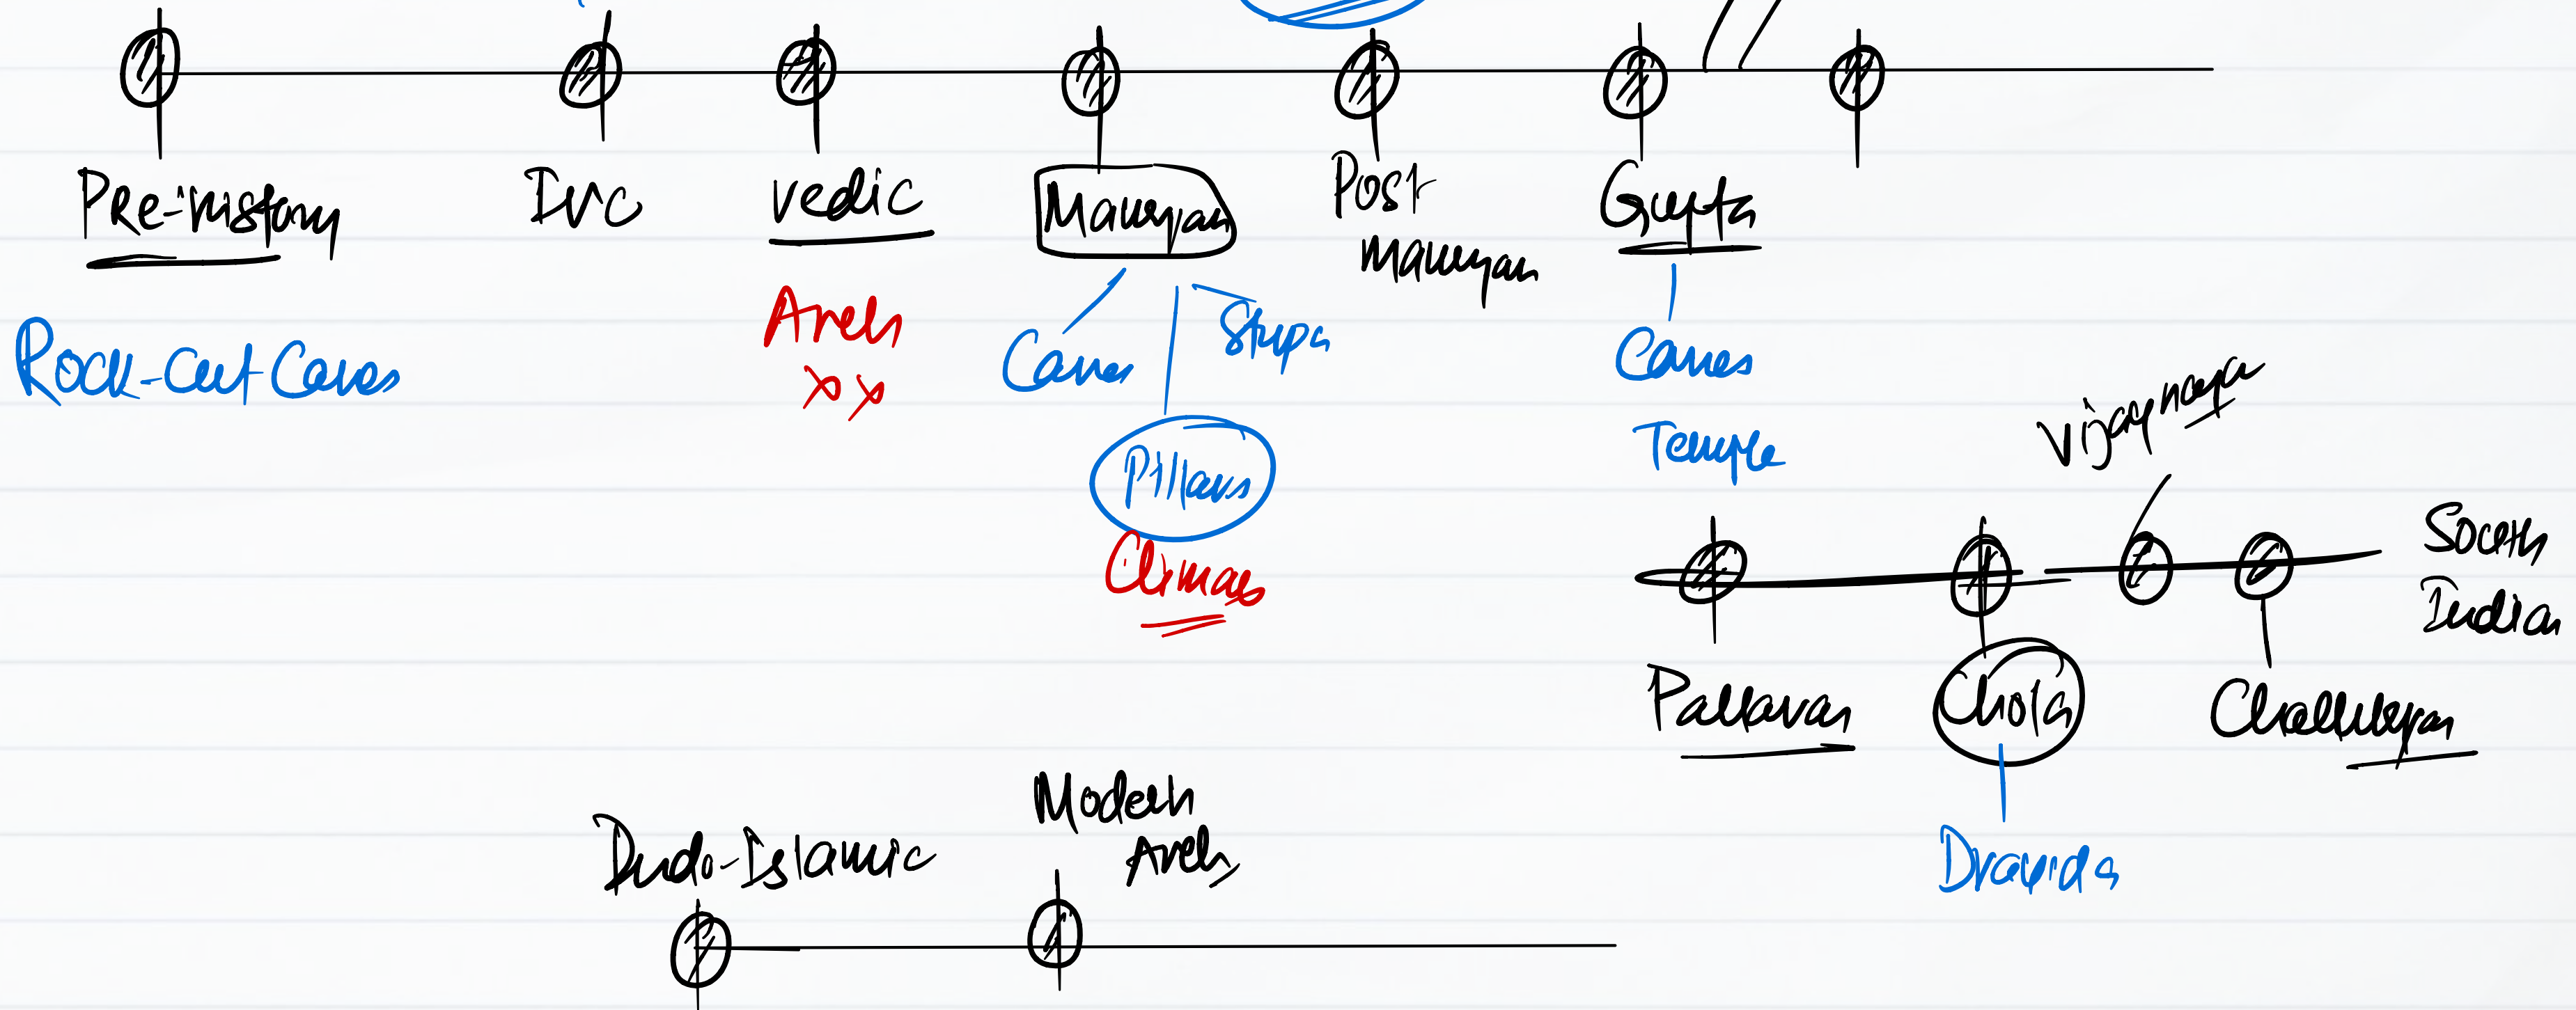 Pre-history
IVC
vedic
Mauryan
Post
Mauryan
Gupta
Rock-cut Caves
Arch
xx
Caves
Stupa
Pillars
Climax
Caves
Temple
Vijaynagar
South
Indian
Pallavas
Chola
Chalukyas
Dravida
Indo-Islamic
Modern
Arch